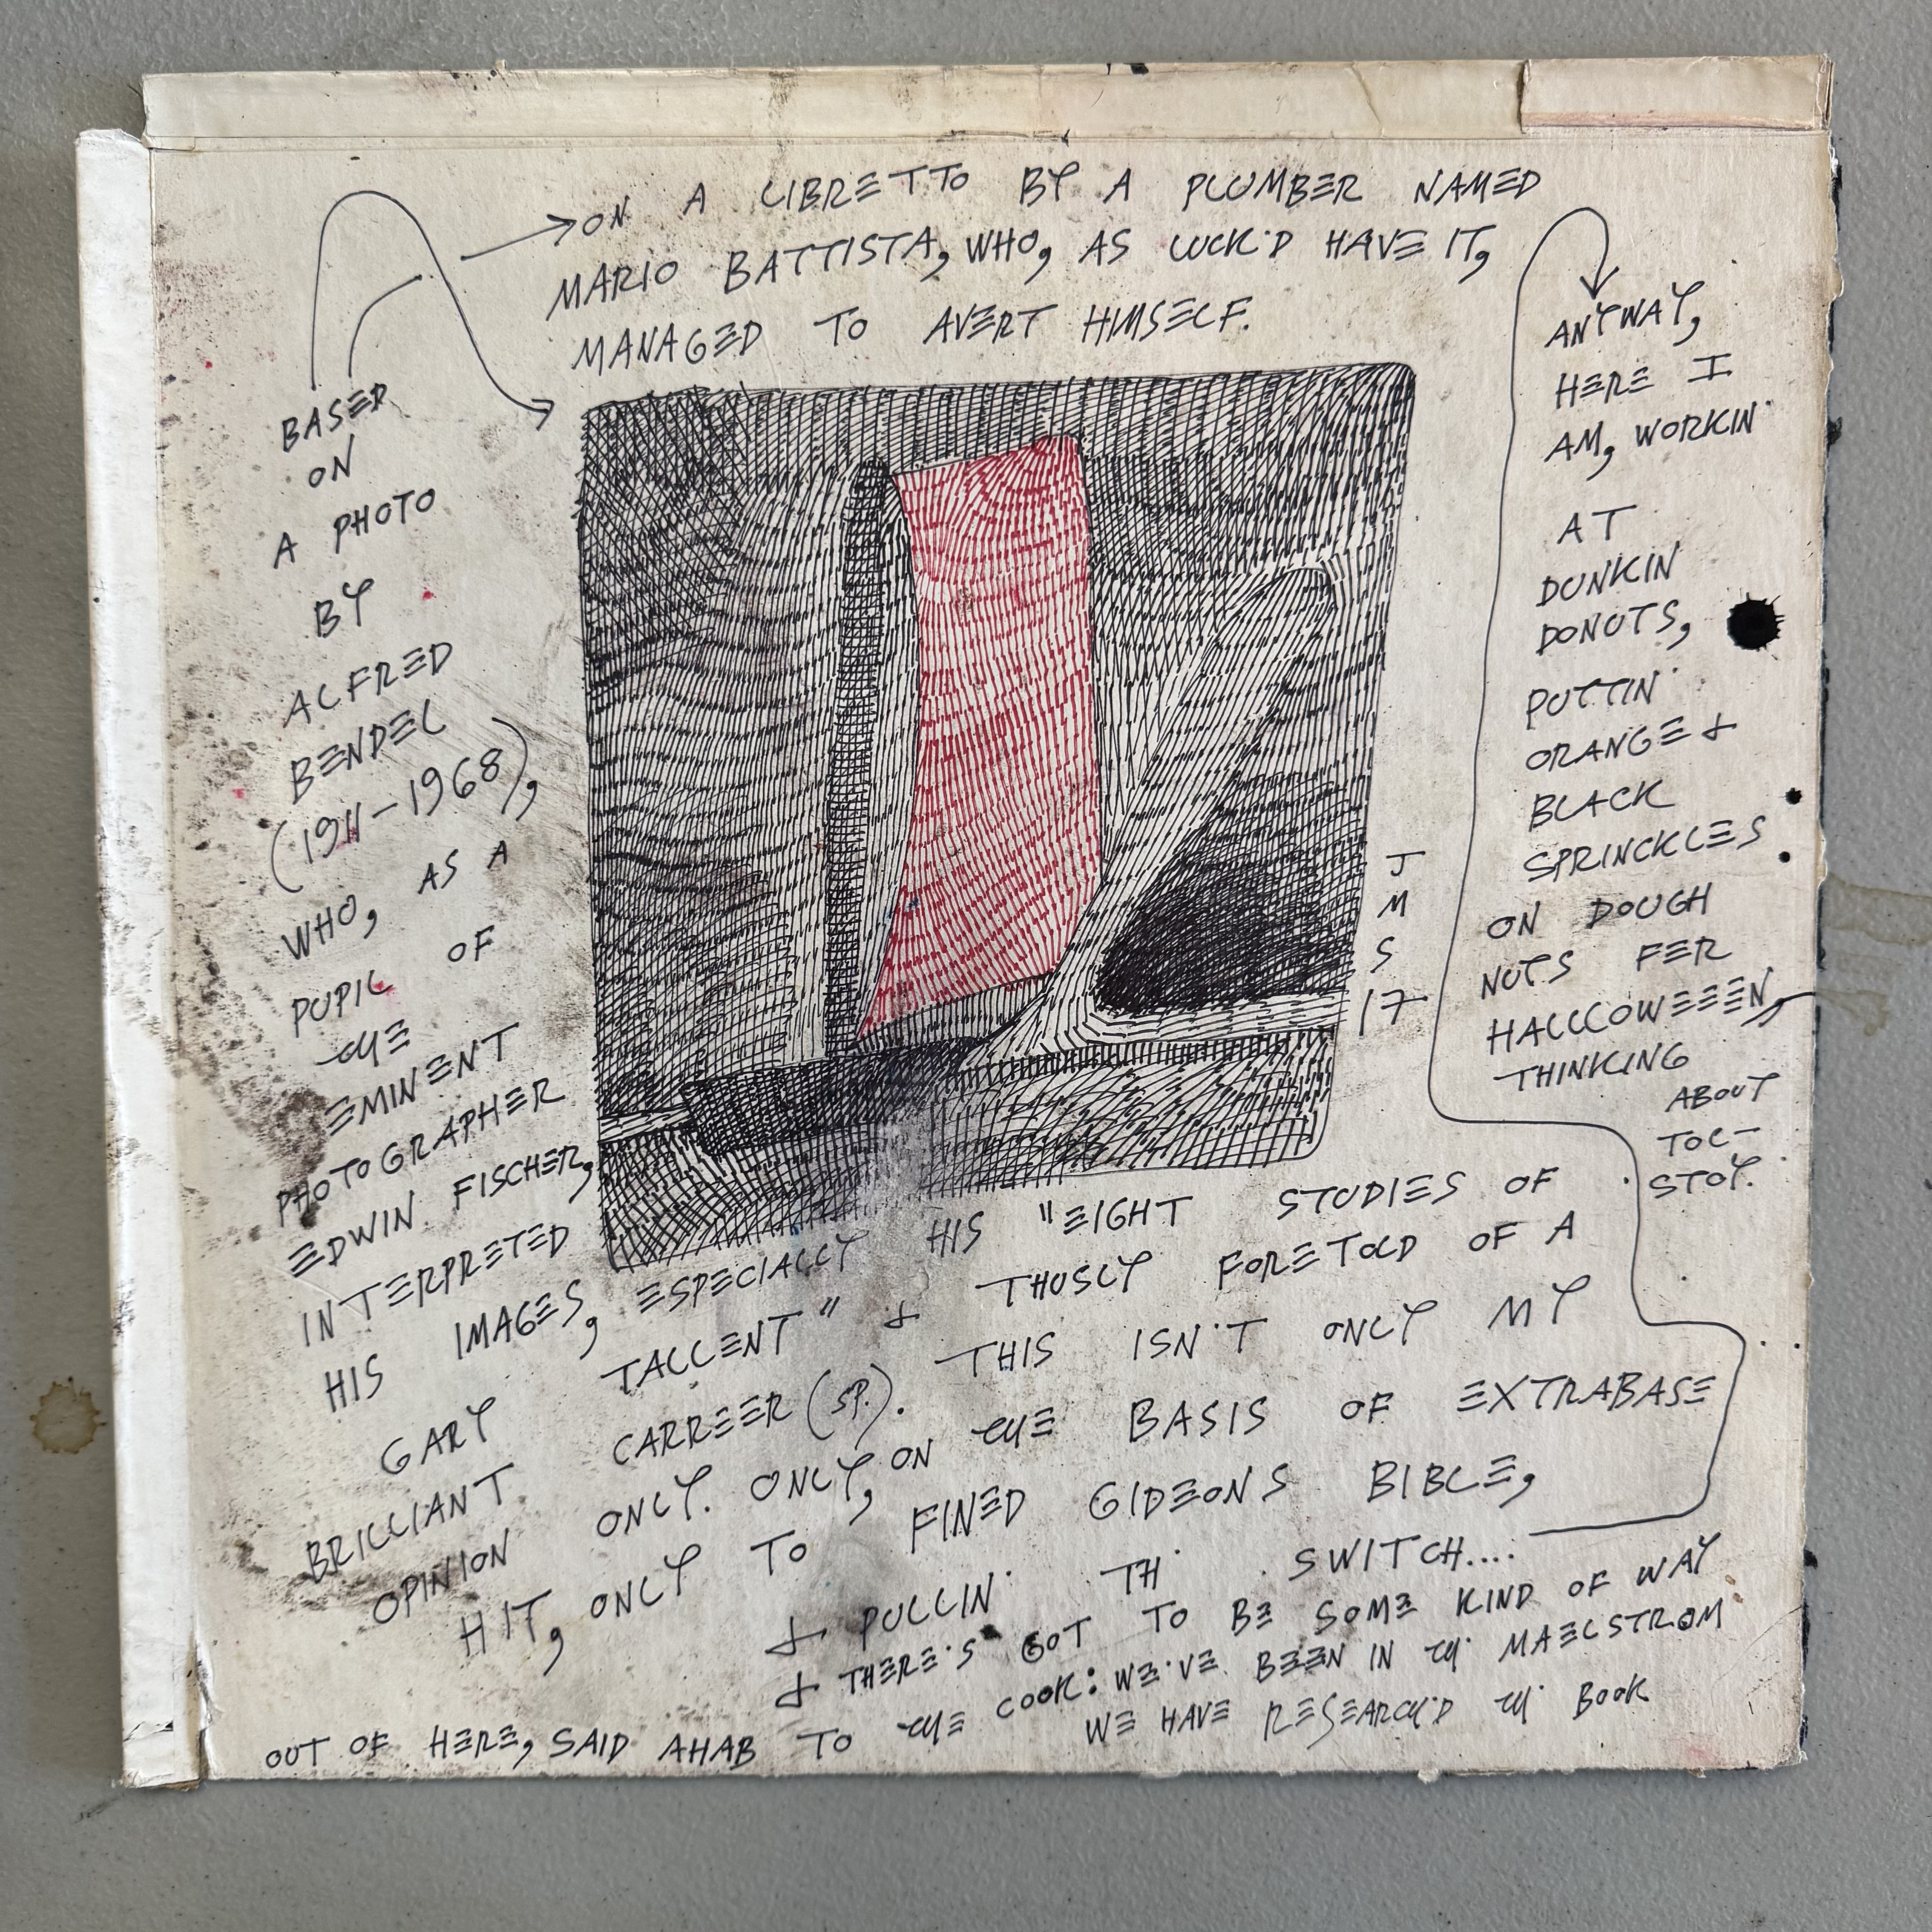 ON A LIBRETTO BY A PLUMBER NAMED
MARIO BATTISTA, WHO, AS LUCK'D HAVE IT,
MANAGED TO AVERT HIMSELF.
BASED
ON
A PHOTO
BY
ALFRED
BENDEL
(1911-1968),
WHO, AS A
PUPIL OF
THE
EMINENT
PHOTOGRAPHER
EDWIN FISCHER,
INTERPRETED
HIS IMAGES, ESPECIALLY HIS "EIGHT STUDIES OF
GARY TALLENT" & THUSLY FORETOLD OF A
BRILLIANT CARREER (SP.). THIS ISN'T ONLY MY
OPINION ONLY. ONLY, ON THE BASIS OF EXTRABASE
HIT, ONLY TO FINED GIDEONS BIBLE,
& PULLIN' TH' SWITCH....
ANYWAY,
HERE I
AM, WORKIN'
AT
DUNKIN
DONUTS,
PUTTIN'
ORANGE &
BLACK
SPRINCKLES
ON DOUGH
NUTS FER
HALLLOWEEEN,
THINKING
ABOUT
TOL-
STOY.
& THERE'S GOT TO BE SOME KIND OF WAY
OUT OF HERE, SAID AHAB TO THE COOK: WE'VE BEEN IN TH' MAELSTROM
WE HAVE RESEARCH'D TH' BOOK
J
M
S
17